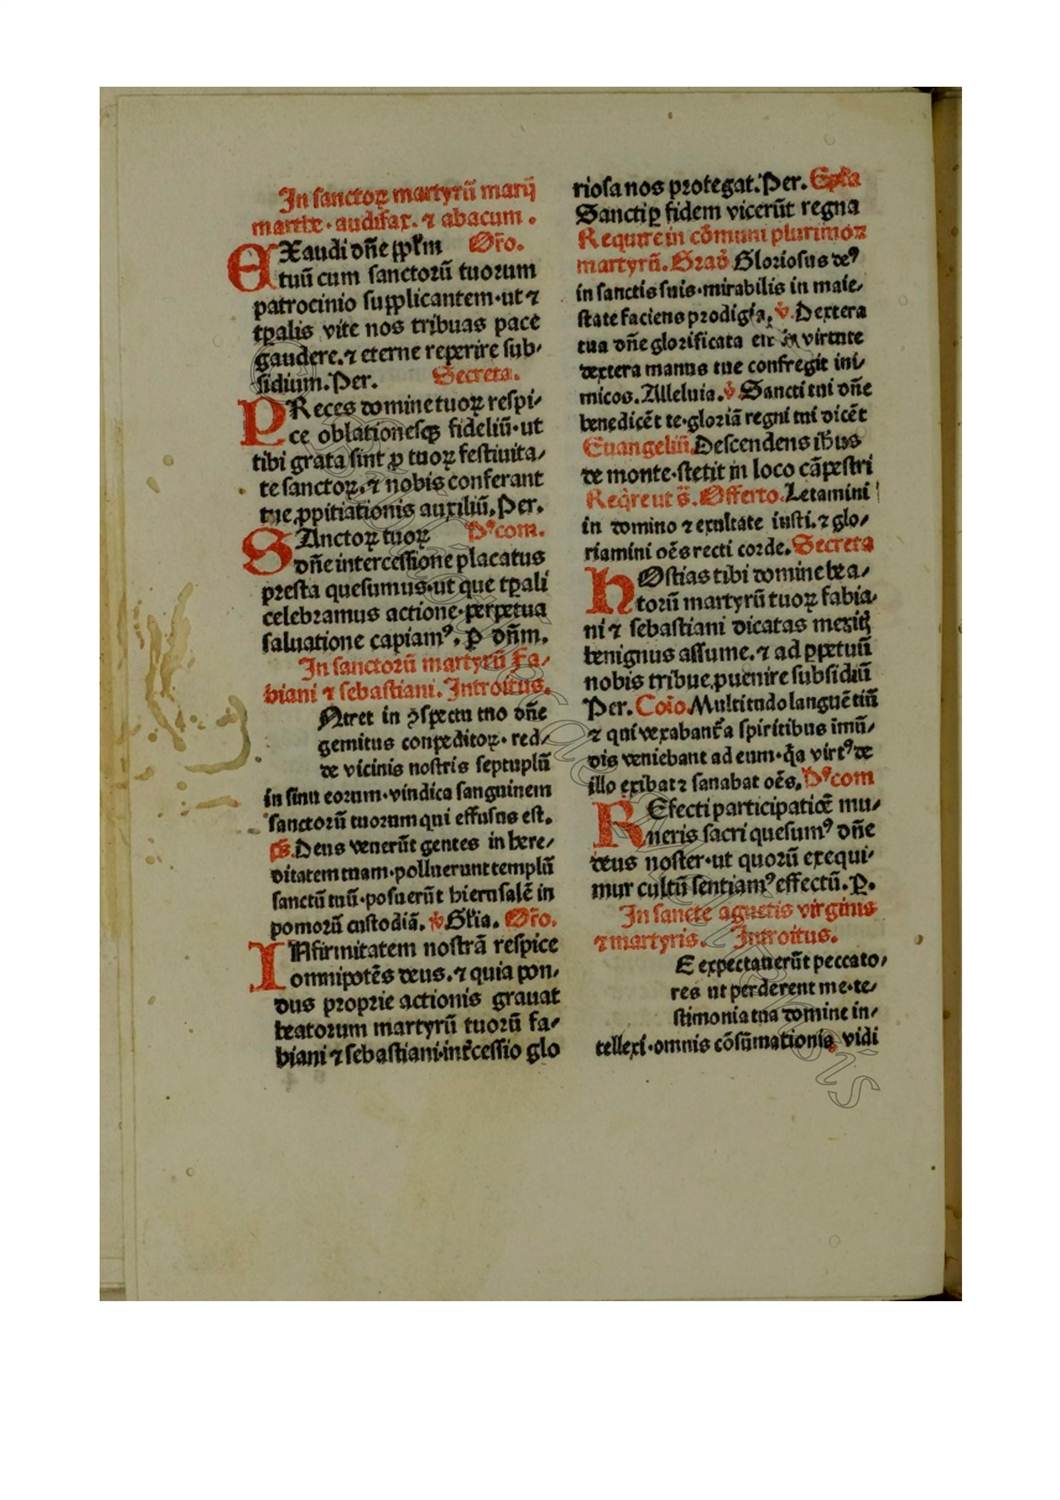 In sanctoꝝ martyrū marij
marthe · audifax. ⁊ abacum .
EXaudi dn̄e pp̄lm Or̄o.
tuū cum sanctorū tuorum
patrocinio supplicantem · ut ⁊
tꝑalis vite nos tribuas pace
gaudere. ⁊ eterne reperire sub-
sidium. Per. Secreta.
PReces domine tuoꝝ respi-
ce oblationesqꝫ fideliū · ut
tibi grata sint ꝓ tuoꝝ festiuita-
te sanctoꝝ. ⁊ nobis conferant
tue ꝓpitiationis auxiliū. Per.
SAnctoꝝ tuoꝝ Pꝰcom.
dn̄e intercessione placatus
presta quesumus · ut que tꝑali
celebramus actione · perpetua
saluatione capiamꝰ. ꝑ dn̄m.
In sanctorū martyrū Fa-
biani ⁊ sebastiani. Introitus.
Ntret in ꝯspectu tuo dn̄e
gemitus conpeditoꝝ · red-
de vicinis nostris septuplū
in sinu eorum · vindica sanguinem
sanctorū tuorum qui effusus est.
ps̄. Deus venerūt gentes in here-
ditatem tuam · polluerunt templū
sanctū tuū · posuerūt hierusalē in
pomorū custodiā. ℣ Gl̄ia. Or̄o.
INfirmitatem nostrā respice
omnipotēs deus. ⁊ quia pon-
dus proprie actionis grauat
beatorum martyrū tuorū fa-
biani ⁊ sebastiani · int̄cessio glo
riosa nos protegat. Per. Epl̄a
Sancti ꝑ fidem vicerūt regna
Require in cōmuni plurimoꝝ
martyrū. Graū Gloriosus deꝰ
in sanctis suis · mirabilis in maie-
state faciens prodigia. ℣. Dextera
tua dn̄e glorificata est in virtute
dextera manus tue confregit ini-
micos. Alleluia. ℣ Sancti tui dn̄e
benedicēt te · gloriā regni tui dicēt
Euangeliū. Descendens ih̄us
de monte · stetit in loco cāpestri
Reqͥre ut s̄. Offerto. Letamini
in domino ⁊ exultate iusti. ⁊ glo-
riamini oēs recti corde. Secreta
HOstias tibi domine bea-
torū martyrū tuoꝝ fabia-
ni ⁊ sebastiani dicatas meritis
benignus assume. ⁊ ad ꝑpetuū
nobis tribue ꝓuenire subsidiū
Per. Coīo. Multitudo languētiū
⁊ qui vexabant̄ a spiritibus imū-
dis veniebant ad eum · qͣa virtꝰ de
illo exibat ⁊ sanabat oēs. Pꝰcom
REfecti participatiōe mu-
neris sacri quesumꝰ dn̄e
deus noster · ut quorū exequi-
mur cultū sentiamꝰ effectū. ꝑ.
In sancte agnetis virginis
⁊ martyris. Introitus.
E expectauerūt peccato-
res ut perderent me · te-
stimonia tua domine in-
tellexi · omnis cōsūmationis vidi